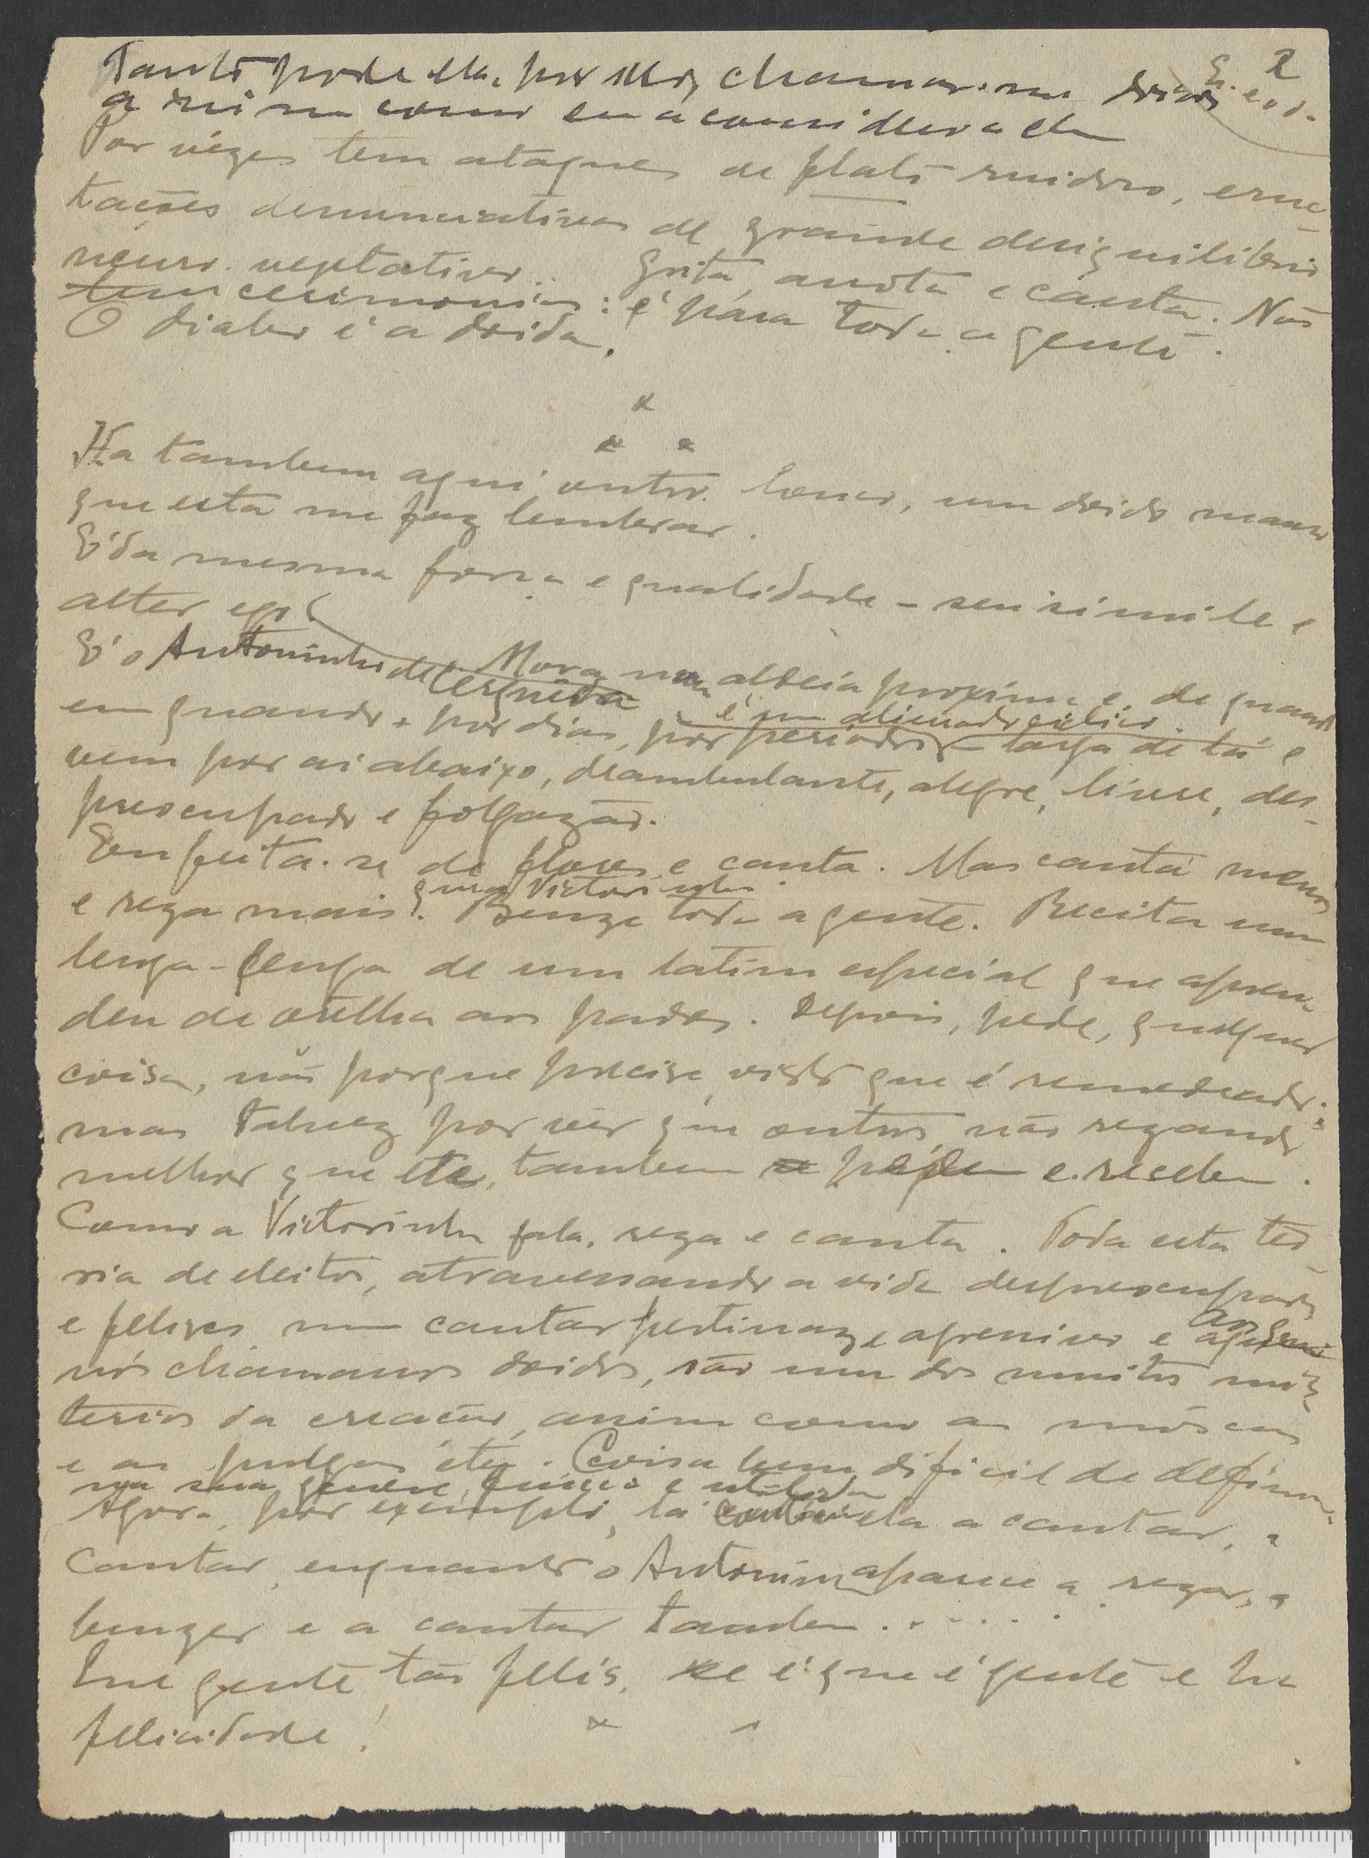 2
Tanto pode ella, por isso, chamar-me doido
a mim como eu a considero a ella
Por vêzes tem ataques de flato ruidoso, eruc-
tações denunciativas de grande desiquilibrio
neuro-vegetativo. Grita, anota e canta. Não
tem cerimonias: é pára toda a gente.
O diabo é a doida.
* * *
Ha tambem aqui outro louco, um doido manso
que esta me faz lembrar.
É da mesma força e qualidade - seu simile e
alter ego
É o Antoninho de Cerqueda Mora na aldeia proxima e de quando
é um alienado ciclico.
em quando, por dias, por periodos larga de lá e
vem por ai abaixo, deambulante, alegre, livre, des-
preocupado e folgazão.
Enfeita-se de flores e canta. Mas canta menos
que a Victorinha
e reza mais. Benze toda a gente. Recita uma
lenga-lenga de um latim especial que apren-
deu de orelha aos padres. Depois, pede, qualquer
coisa, não porque precise, visto que é remediado;
mas talvez por vêr que outros, não rezando
melhor que ele, tambem pedem e recebem.
Como a Victorinha fala, reza e canta. Toda esta teo-
ria de eleitos, atravessando a vida despreocupados
e felizes num cantar pertinaz e apreensivo e a quem
nós chamamos doidos, são um dos muitos mis-
terios da creação, assim como as môscas
e as pulgas, etc. Coisa bem dificil de definir
na sua genese, função e utilidade
Agora, por exemplo, lá continua ela a cantar, a
cantar, enquanto o Antoninho aparece a rezar, a
benzer e a cantar tambem . . . . . .
Que gente tão felis, se é que é gente e ha
felicidade!